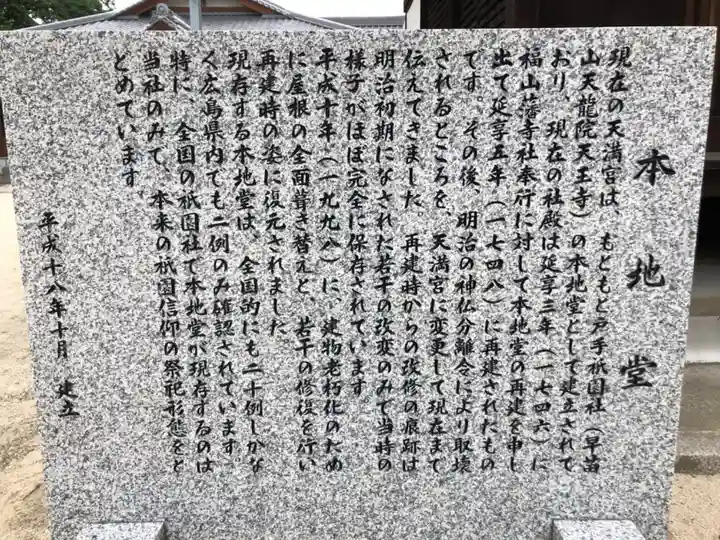 本地堂
現在の天満宮は、もともと戸手祇園社（早苗
山天龍院天王寺）の本地堂として建立されて
おり、現在の社殿は延享三年（一七四六）に
福山藩寺社奉行に対して本地堂の再建を申し
出て延享五年（一七四八）に再建されたもの
です。その後、明治の神仏分離令により取壊
されるところを、天満宮に変更して現在まで
伝えてきました。再建時からの改修の痕跡は
明治初期になされた若干の改変のみで当時の
様子がほぼ完全に保存されています
平成十年（一九九八）に、建物老朽化のため
に屋根の全面葺き替えと、若干の修復を行い
再建時の姿に復元されました。
現存する本地堂は、全国的にも二十例しかな
く広島県内でも二例のみ確認されています
特に、全国の祇園社で本地堂が現存するのは
当社のみで、本来の祇園信仰の祭祀形態をと
どめています。
平成十八年十月　建立